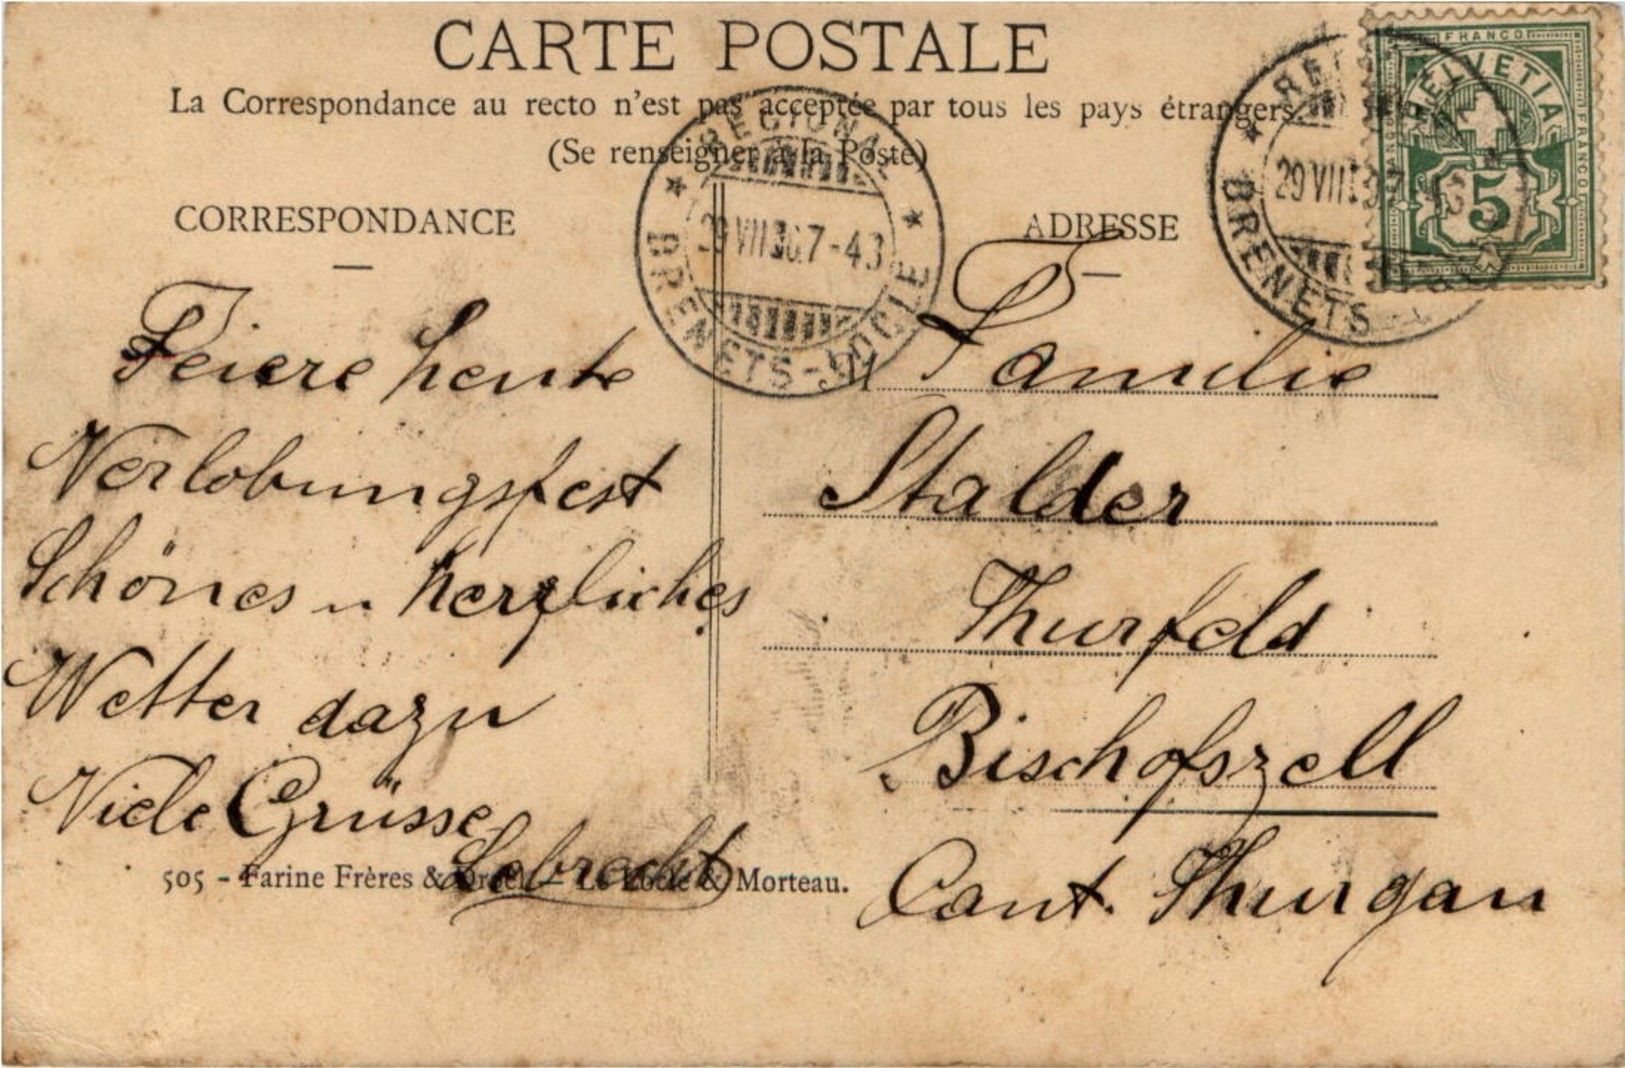 CARTE POSTALE
La Correspondance au recto n'est pas acceptée par tous les pays étrangers.
(Se renseigner à la Poste)
CORRESPONDANCE
Feiere heute
Verlobungsfest
Schönes u herzliches
Wetter dazu
Viele Grüsse
Lebrecht
505 - Farine Frères & Droël - Le Locle & Morteau.
ADRESSE
M Familie
Stalder
Thurfeld
Bischofszell
Cant. Thurgau
REGIONAL
29 VIII 07-43
BRENETS-LOCLE
29 VIII
BRENETS-
FRANCO
HELVETIA
FRANCO
5